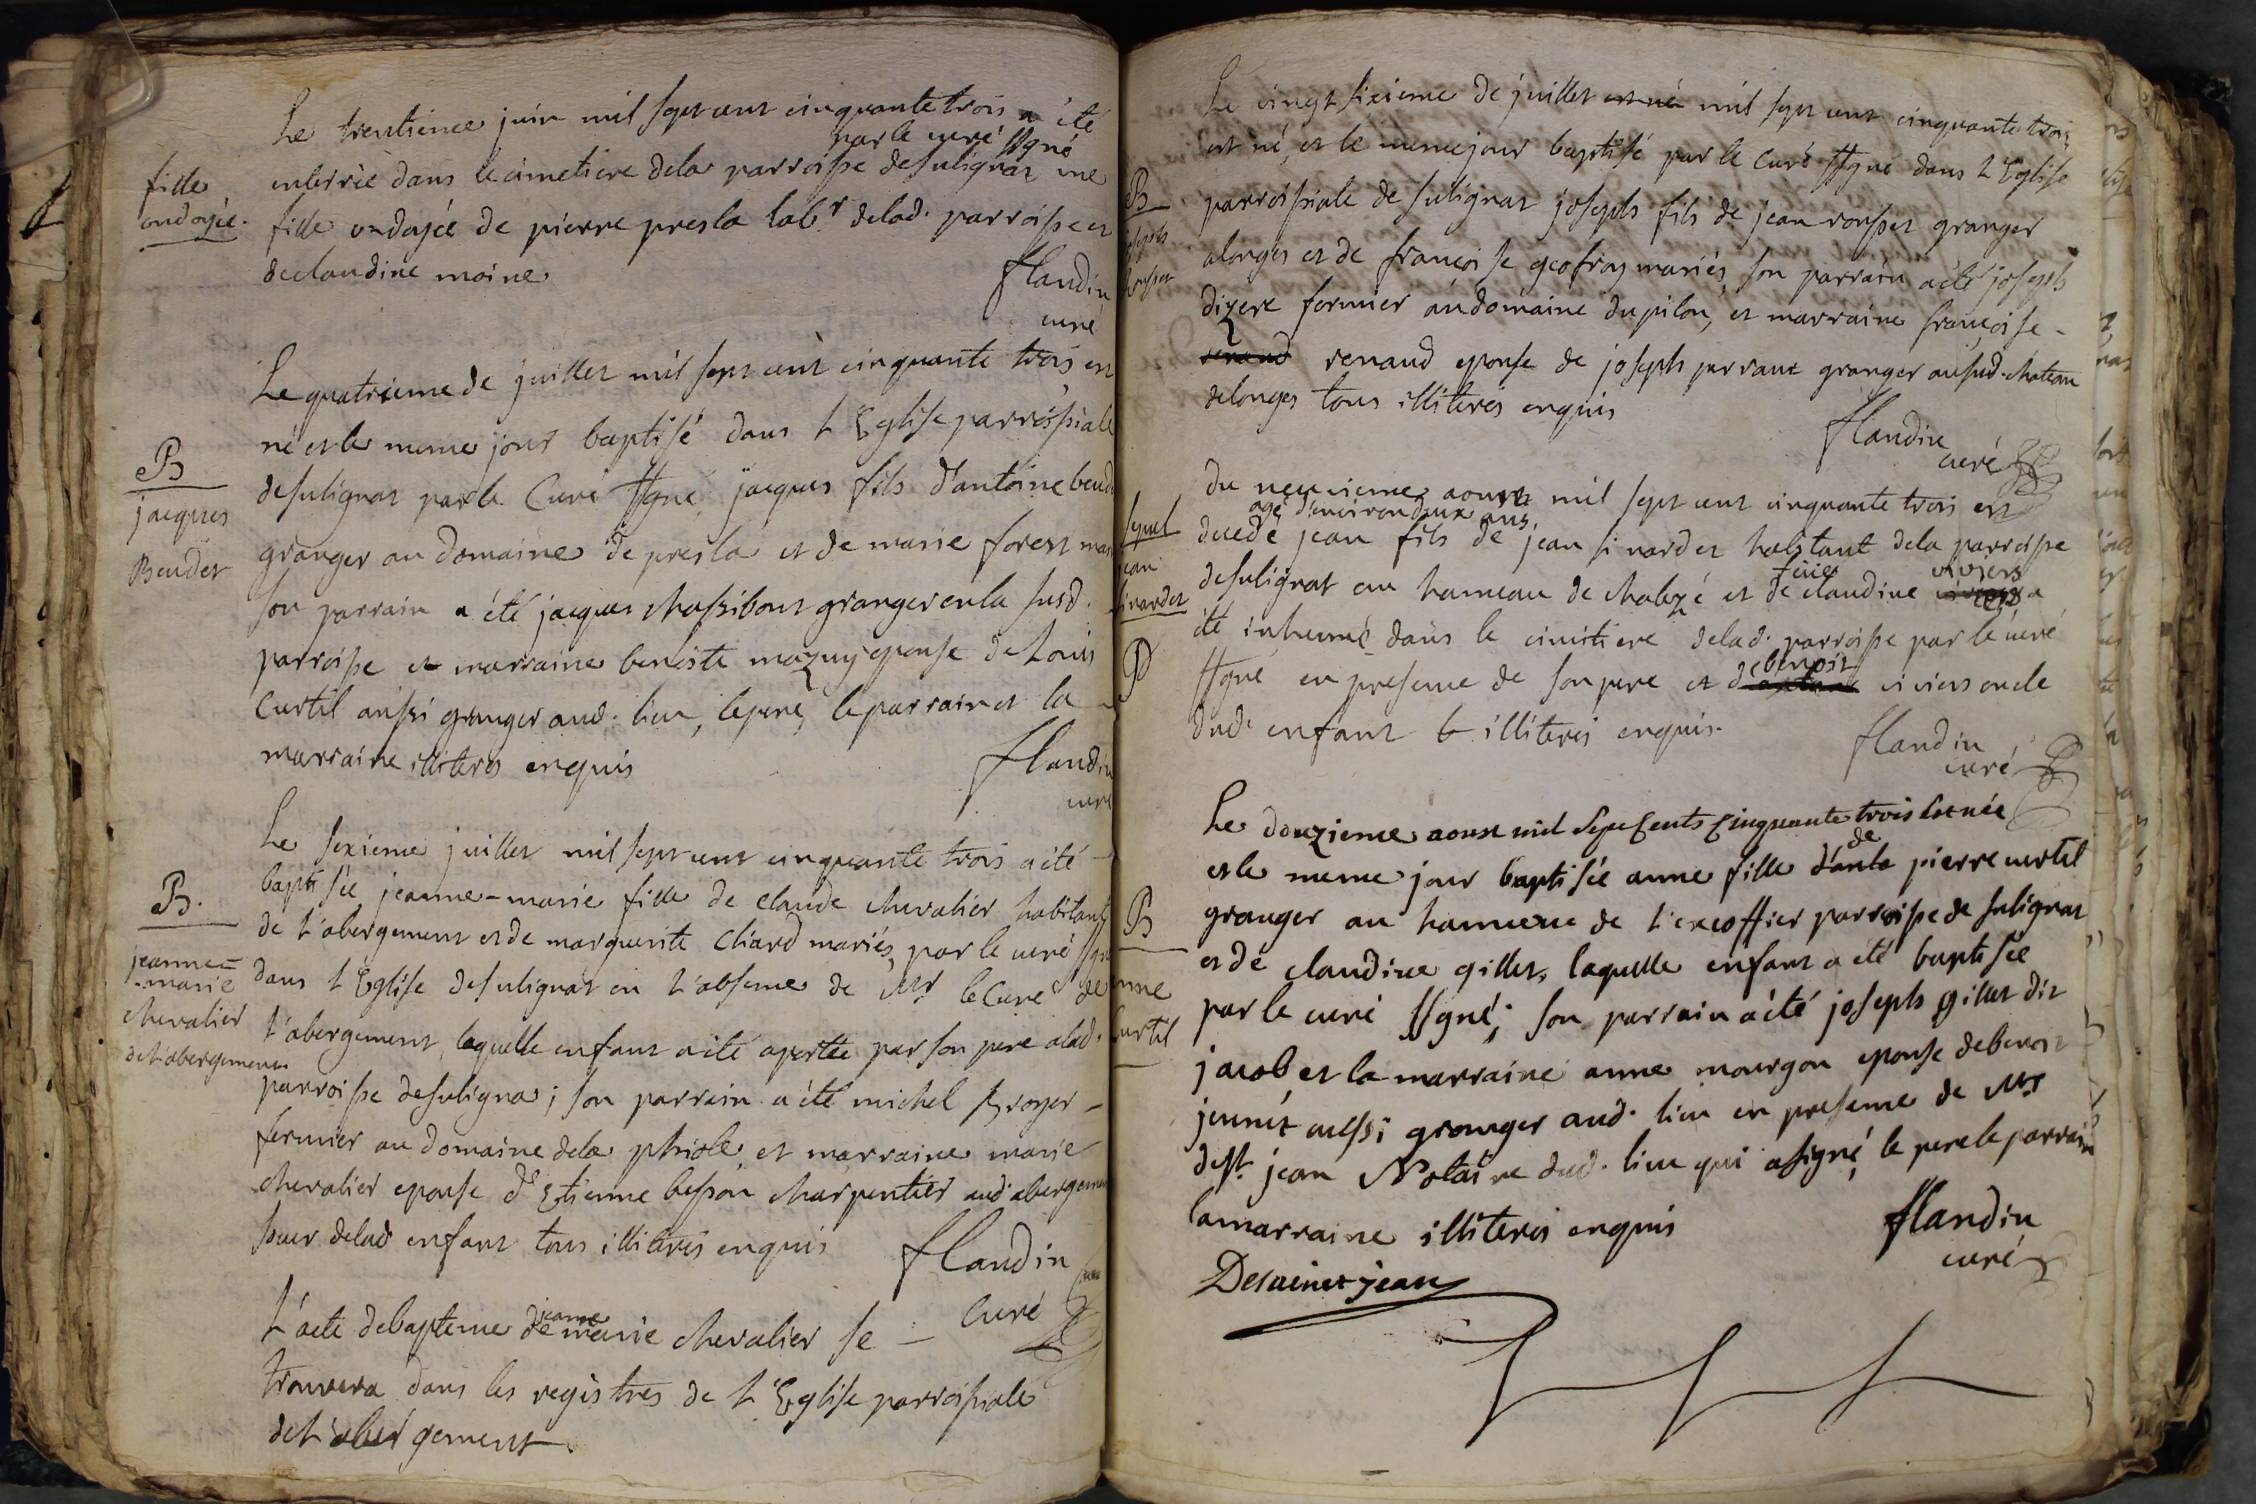 Le trentieme juin mil sept cent cinquante trois a été
par le curé ssgné
enterrée dans le cimetiere dela parroisse de sulignat une
fille
ondoyée.
fille ondoyée de pierre presla lab.r delad. parroisse et
declaudine moine
flandin
curé
Le quatrieme de juillet mil sept cent cinquante trois est
né et le meme jour baptisé dans l Eglise parroissiale
B
jacques
Beudet
desulignat par le Curé ssgné jacques fils d'antoine beud
granger au domaine de presla et de marie forest mar
son parrain a été jacques chassibout granger en la susd.
parroisse et marraine benoite mazuy epouse de Louis
Curtil aussi granger aud. lieu, le pere, le parrain et la
marraine illiterés enquis
flandin
curé
Le sixieme juillet mil sept cent cinquante trois a été
baptisée jeanne-marie fille de claude chevalier habitant
B.
jeanne=
-marie
chevalier
de l'abergement
de l'abergement et de marguerite Chard mariés, par le curé ssgné
dans l Eglise desulignat en l'absence de Mr le Curé de
l'abergement, laquelle enfant a été aportée par son pere alad.
parroisse desulignat; son parrain a été michel broyer
fermier au domaine dela phiole, et marraine marie
chevalier epouse d'Etienne besson charpentier aud. abergement
soeur delad enfant tous illiterés enquis
flandin
curé
L'acte debapteme de jeanne marie chevalier se
trouvera dans les registres de l'Eglise parroissiale
de l'abergement.
Le vingt sixieme de juillet est né mil sept cent cinquante trois
est né, et le meme jour baptisé par le Curé ssgné dans l Eglise
B
joseph
rousset
parroissiale de sulignat joseph fils de jean rousset granger
alonges et de françoise geofroy mariés, son parrain a été joseph
dizere fermier au domaine du pilon, et marraine françoise
renaud renaud epouse de joseph perraut granger ausud. chateau
delonges tous illiterés enquis
flandin
curé
Du neuvieme aoust mil sept cent cinquante trois est
agé d'environ deux ans
decedé jean fils de jean sivardet habitant dela parroisse
sepul
jean
sivardet
P
desulignat au hameau de chalezé et de claudine viviers a
été inhumé dans le cimetiere delad. parroisse par le curé
ssgné en presence de son pere et de benoit viviers oncle
dud. enfant illiterés enquis.
flandin
curé
Le douzieme aoust mil sept cents cinquante trois est née
et le meme jour baptisée anne fille de pierre curtil
B
anne
Curtil
granger au hameau de l'excoffier parroisse de sulignat
et de claudine gillet, laquelle enfant a été baptisée
par le curé ssgné; son parrain a été joseph gillet dit
jacob et la marraine anne mourgon epouse debenoit
jeunet aussi granger aud. lieu en presence de Mr
dest. jean Notaire dud. lieu qui a signé, le pere le parrain
la marraine illiterés enquis
flandin
curé
Desainct jean